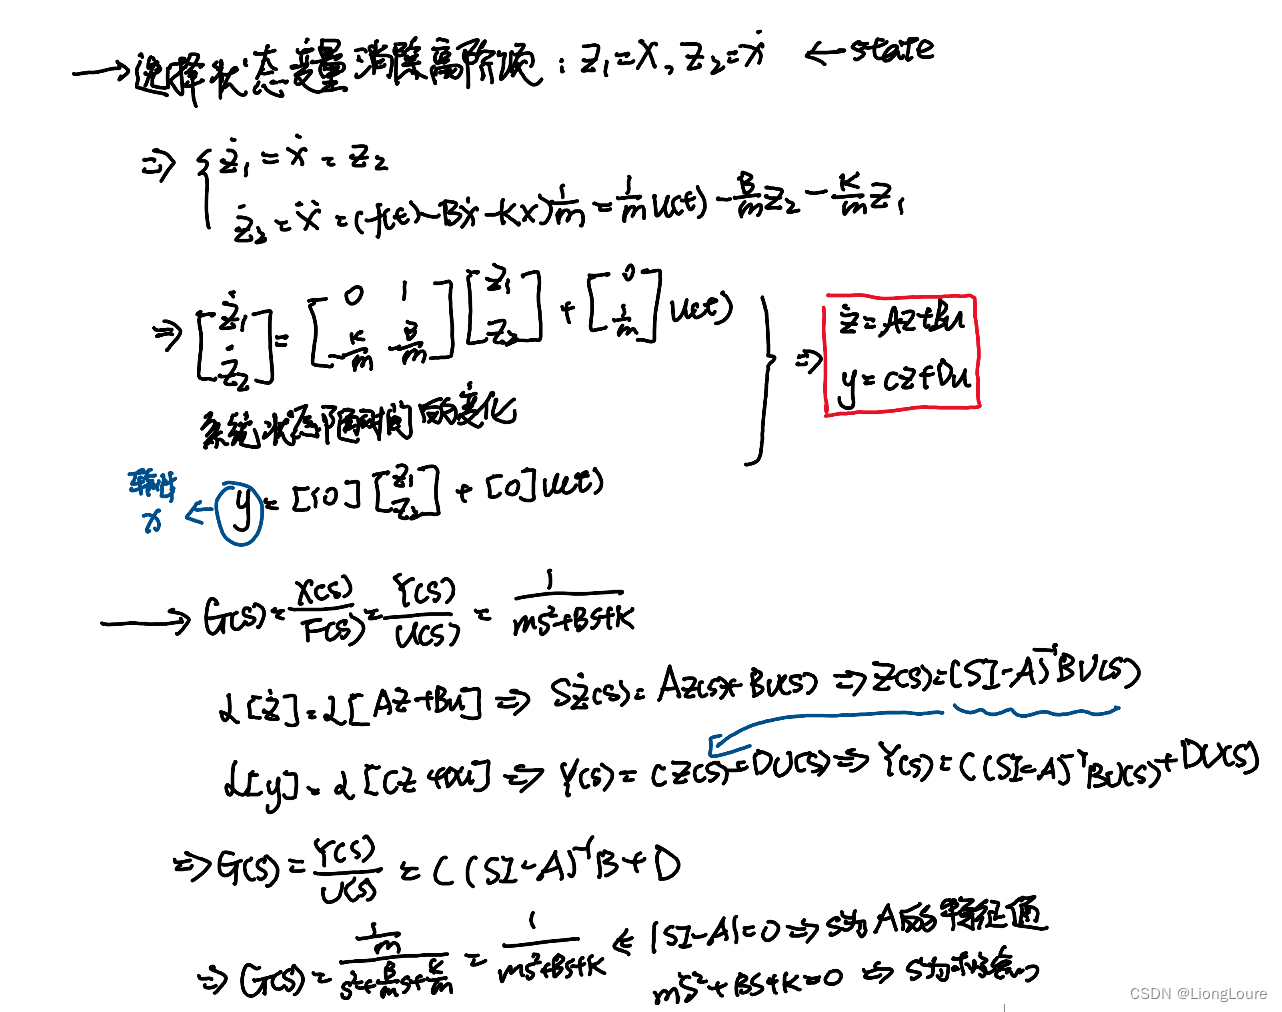 →选择状态变量消除高阶项：z₁=x, z₂=ẋ ← state
⇒ { ż₁ = ẋ = z₂
ż₂ = ẍ = (f(t) - Bẋ - Kx) 1/m = 1/m u(t) - B/m z₂ - K/m z₁
⇒ [ż₁ ż₂] = [0 1 -K/m -B/m] [z₁ z₂] + [0 1/m] u(t) } ⇒ ż = Az + Bu
y = Cz + Du
系统状态随时间的变化
x ← y = [1 0] [z₁ z₂] + [0] u(t)
→ G(s) = X(s)/F(s) = Y(s)/U(s) = 1/(ms²+Bs+K)
L[ż] = L[Az+Bu] ⇒ sż(s) = Az(s) + Bu(s) ⇒ Z(s) = (SI-A)⁻¹BU(s)
L[y] = L[Cz+Du] ⇒ Y(s) = CZ(s) = DU(s) ⇒ Y(s) = C(SI-A)⁻¹BU(s) + DU(s)
⇒ G(s) = Y(s)/U(s) = C(SI-A)⁻¹B + D
⇒ G(s) = (1/m)/(s²+B/m s+K/m) = 1/(ms²+Bs+K) ← |SI-A|=0 ⇒ s为A的特征值
ms²+Bs+K=0 ⇒ s为
CSDN @LiongLoure